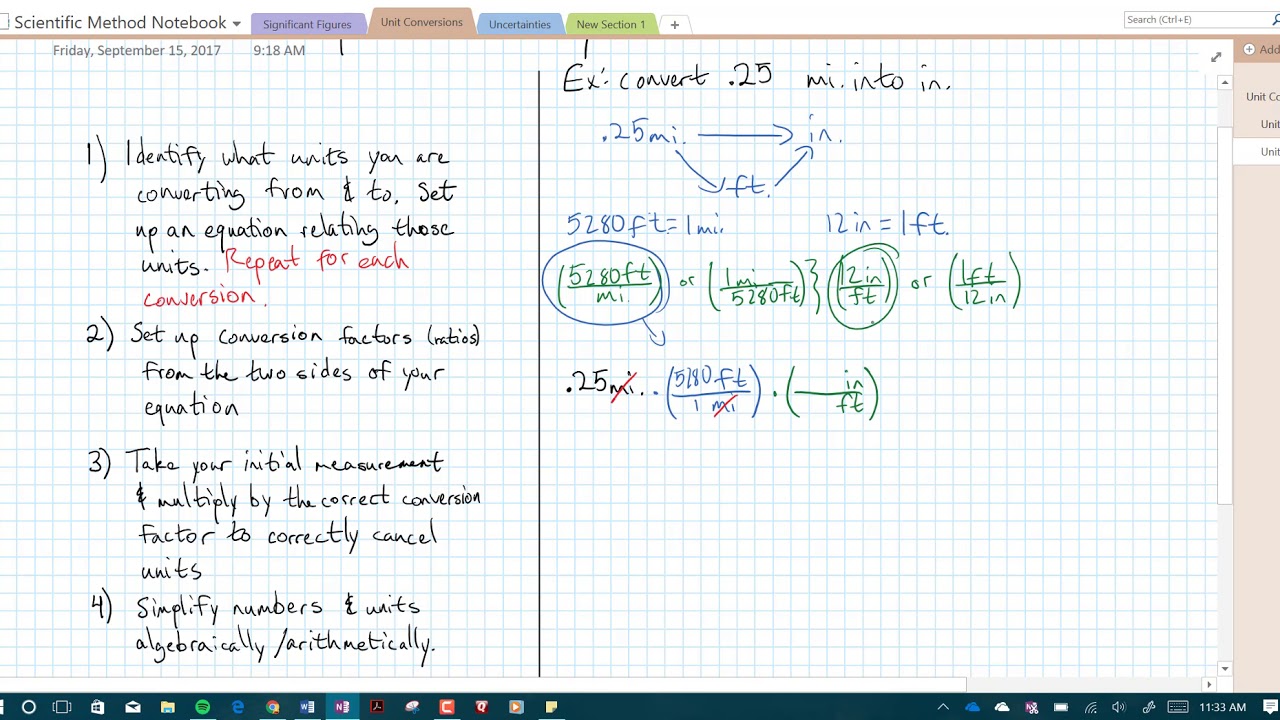 Scientific Method Notebook
Significant Figures
Unit Conversions
Uncertainties
New Section 1
Search (Ctrl+E)
Friday, September 15, 2017 9:18 AM
Add
Unit Co
Unit
Unit
1) Identify what units you are
converting from & to. Set
up an equation relating those
units. Repeat for each
conversion.
2) Set up conversion factors (ratios)
from the two sides of your
equation
3) Take your initial measurement
& multiply by the correct conversion
factor to correctly cancel
units
4) Simplify numbers & units
algebraically/arithmetically.
Ex: convert .25 mi. into in.
.25mi. → in.
ft.
5280ft=1mi. 12in=1ft.
(5280ft/mi.) or (1mi/5280ft)} (12in/ft) or (1ft/12in)
.25mi. · (5280ft/1 mi) · (in/ft)
11:33 AM